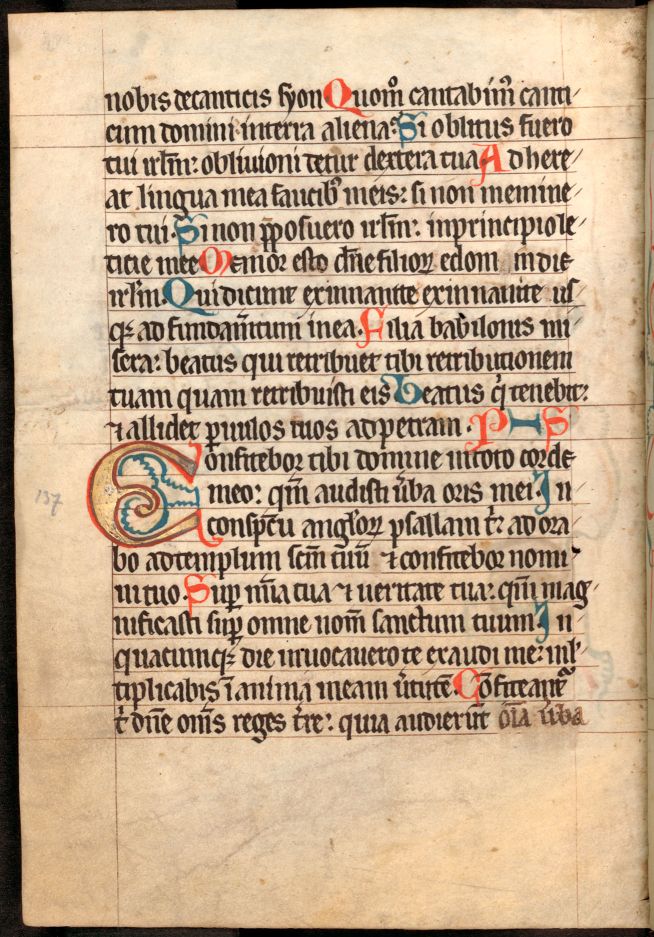 nobis de canticis syon Quom̊ cantabim᷒ canti/
cum domini in terra aliena: Si oblitus fuero
tui irl̄m: oblivioni detur dextera tua Adhere/
at lingua mea faucib᷒ meis: si non memine/
ro tui. Si non ꝓposuero irl̄m: in principio le/
ticie mee Memor esto dn̄e filioꝝ edom in die
irl̄m. Qui dicunt exinanite exinanite us/
qꝫ ad fundam̄tum in ea. Filia babilonis mi/
sera: beatus qui retribuet tibi retributionem
tuam quam retribuisti eis Beatus q̇ tenebit:
⁊ allidet ꝑvulos tuos ad petram. P I S
Confitebor tibi domine in toto corde
137 meo: qm̄ audisti v̄ba oris mei. In
conspc̄tu angl̓oꝝ psallam t̓: adora/
bo ad templum scm̄ tuū ⁊ confitebor nomi/
ni tuo. Suꝑ mīa tua ⁊ veritate tua: qm̄ mag/
nificasti suꝑ omne nom̄ sanctum tuum. In
quacumqꝫ die invocavero te exaudi me: ml̓/
tiplicabis ī anima meam v̓tutē. Cōfiteant᷑
t̓ dn̄e om̄s reges t̓re: quia audierūt om̄ia v̄ba